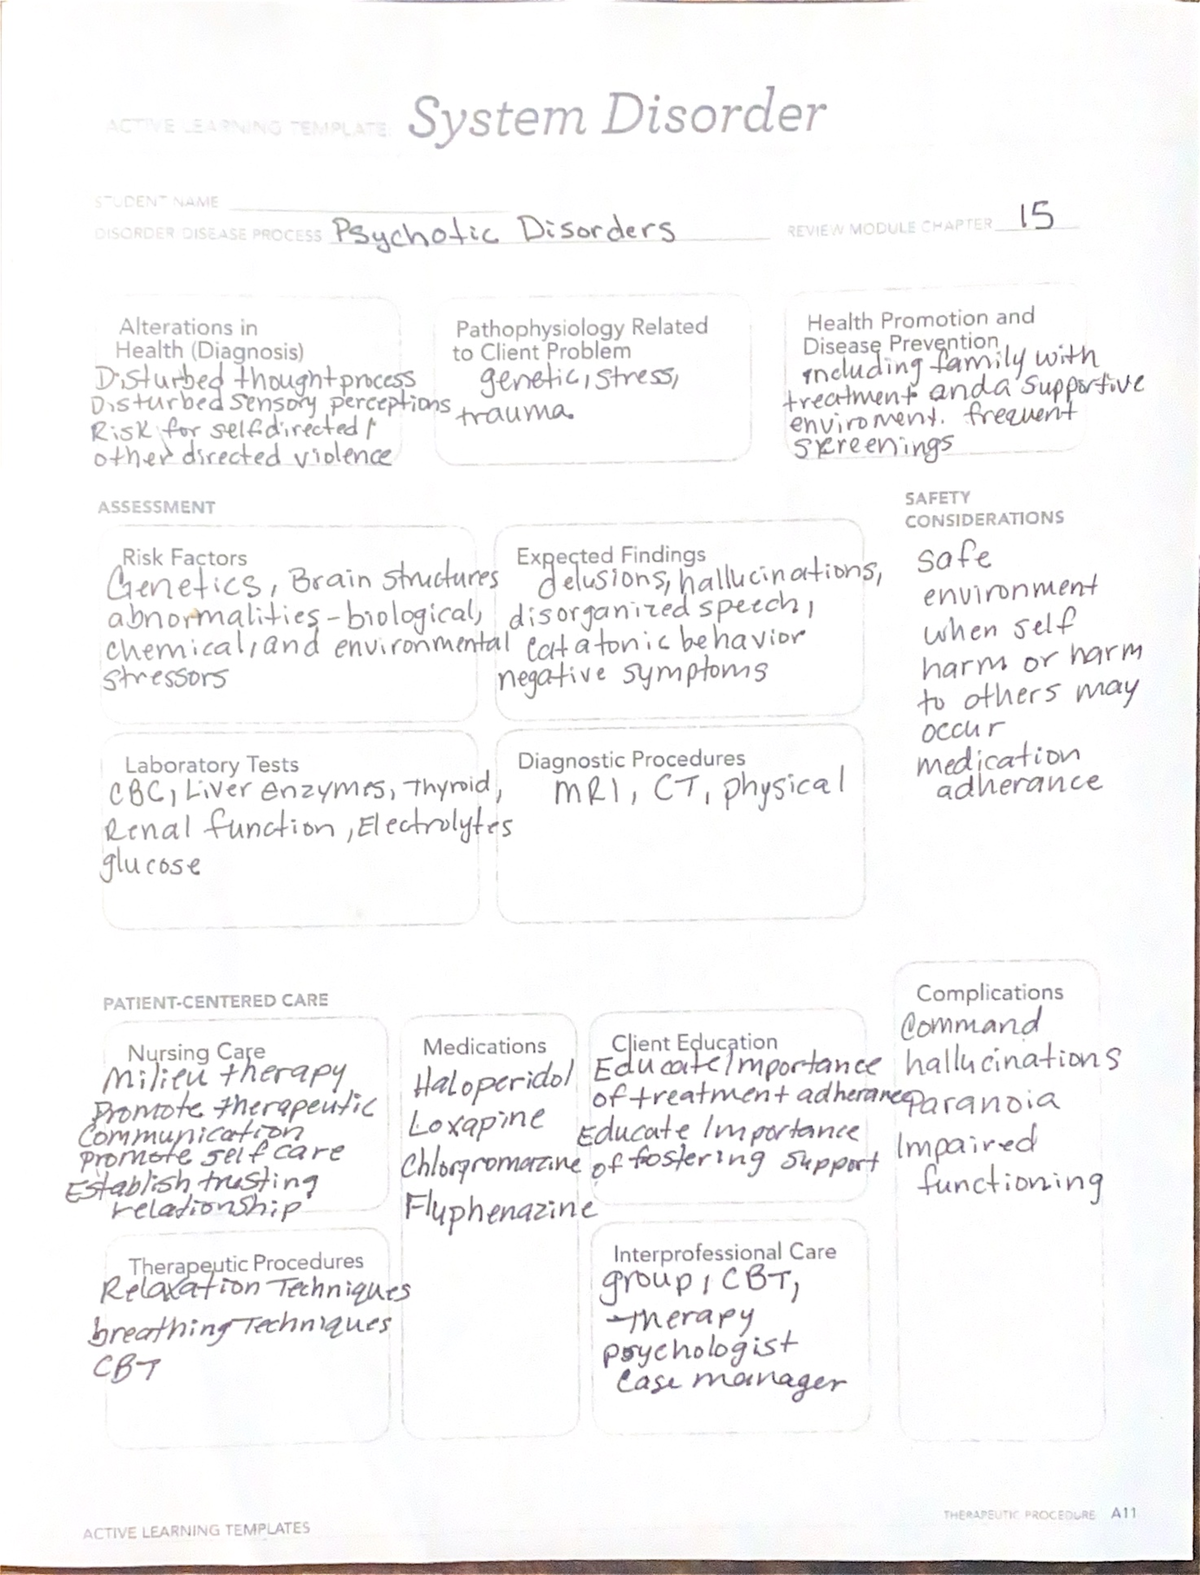 ACTIVE LEARNING TEMPLATE: System Disorder
STUDENT NAME
DISORDER/DISEASE PROCESS Psychotic Disorders
REVIEW MODULE CHAPTER 15
Alterations in
Health (Diagnosis)
Disturbed thought process
Disturbed sensory perceptions
Risk for self directed /
other directed violence
Pathophysiology Related
to Client Problem
genetic, stress,
trauma.
Health Promotion and
Disease Prevention
including family with
treatment and a supportive
enviroment. frequent
screenings
ASSESSMENT
SAFETY
CONSIDERATIONS
Risk Factors
Genetics, Brain structures
abnormalities - biological,
chemical, and environmental
stressors
Expected Findings
delusions, hallucinations,
disorganized speech,
catatonic behavior
negative symptoms
safe
environment
when self
harm or harm
to others may
occur
medication
adherance
Laboratory Tests
CBC, Liver enzymes, Thyroid,
Renal function, Electrolytes
glucose
Diagnostic Procedures
MRI, CT, physical
PATIENT-CENTERED CARE
Nursing Care
Milieu therapy
Promote therapeutic
Communication
promote self care
Establish trusting
relationship
Medications
Haloperidol
Loxapine
Chlorpromazine
Fluphenazine
Client Education
Educate Importance
of treatment adherance
Educate Importance
of fostering support
Complications
Command
hallucinations
Paranoia
Impaired
functioning
Therapeutic Procedures
Relaxation Techniques
breathing Techniques
CBT
Interprofessional Care
group, CBT,
therapy
psychologist
Case manager
ACTIVE LEARNING TEMPLATES
THERAPEUTIC PROCEDURE A11